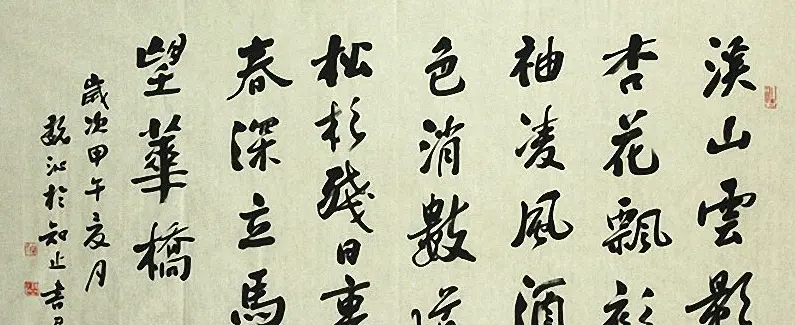 溪山雲影
杏花飄衫
袖凌風酒
色消數
松杉殘日
春深立馬
望華橋
歲次甲午亥月
於知止書